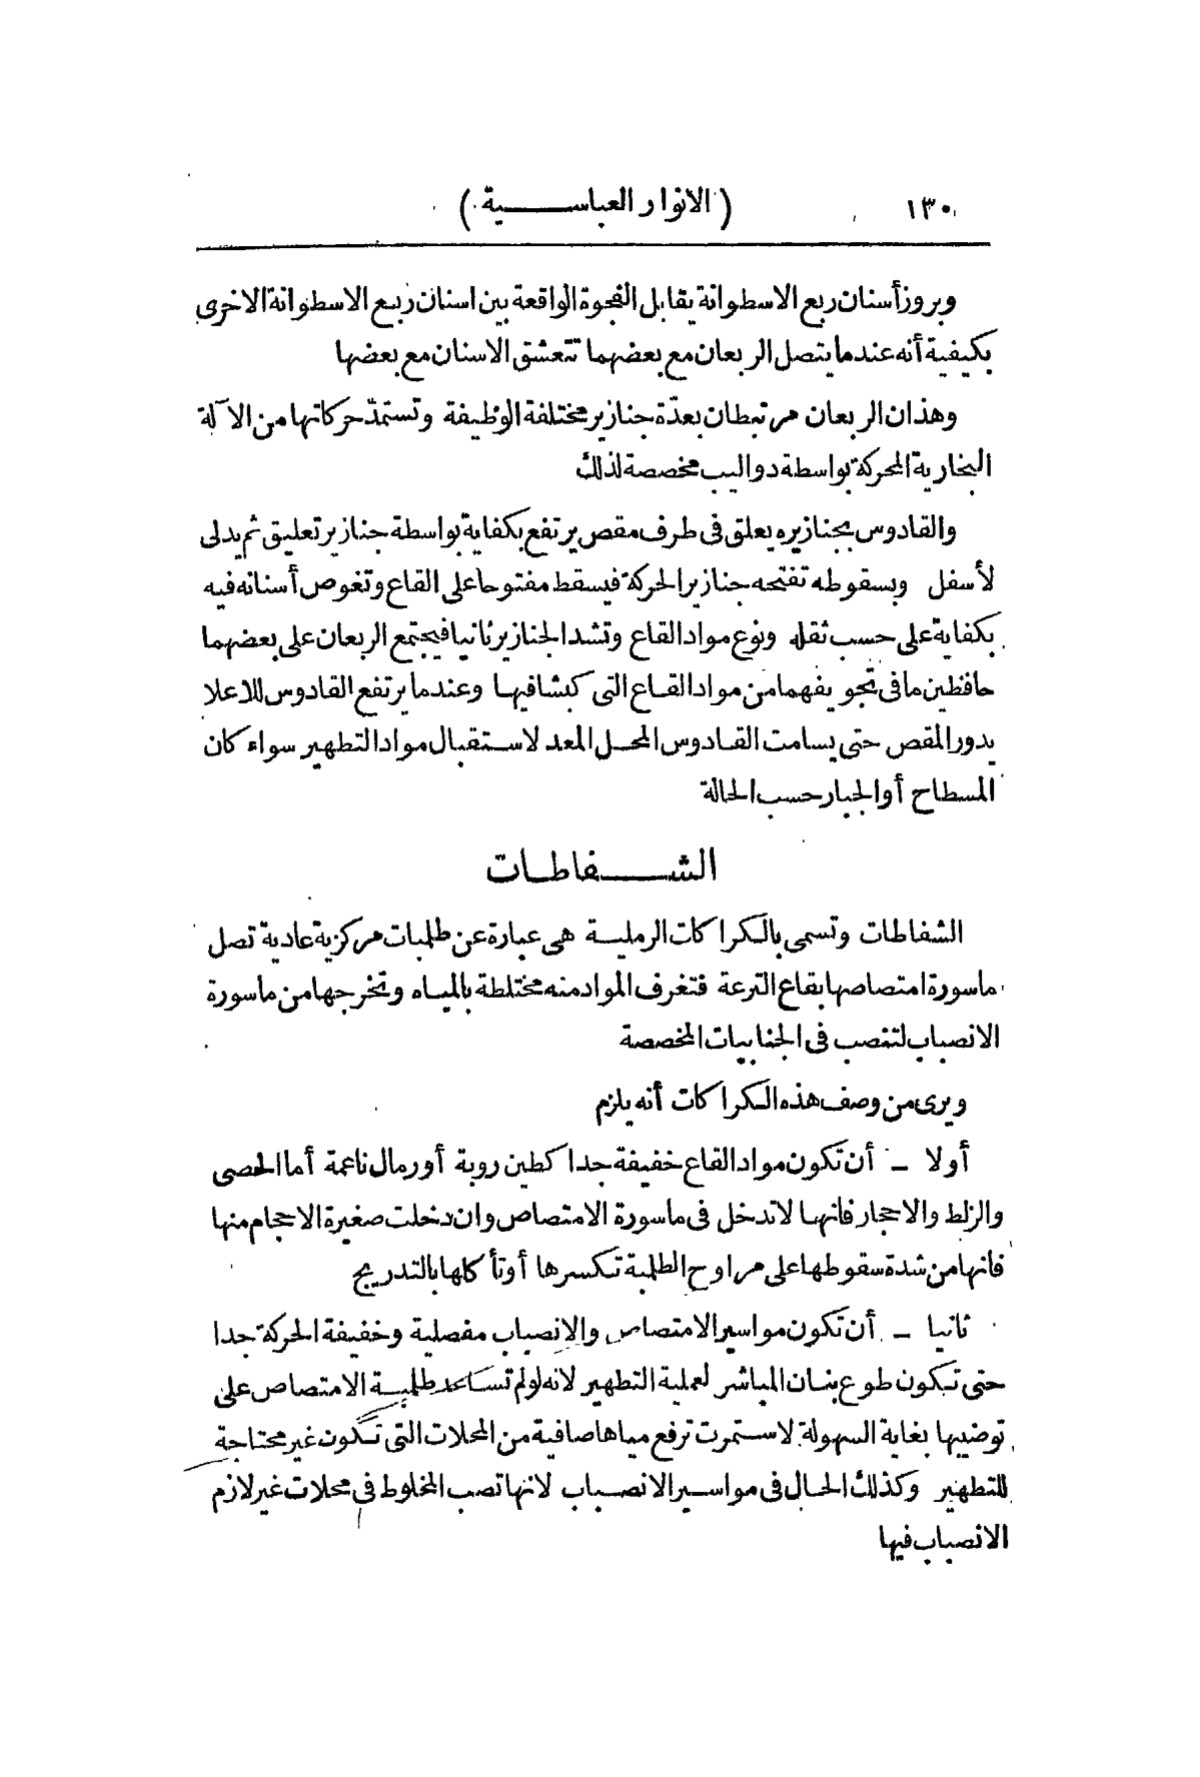 ١٣٠
( الانوار العباســـية )
وبروز أسنان ربع الاسطوانة يقابل الفجوة الواقعة بين اسنان ربع الاسطوانة الاخرى
بكيفية أنه عندما يتصل الربعان مع بعضهما تتعشق الاسنان مع بعضها
وهذان الربعان مرتبطان بعدّة جنازير مختلفة الوظيفة وتستمدّ حركاتها من الآلة
البخارية المحركة بواسطة دواليب مخصصة لذلك
والقادوس بجنازيره يعلق فى طرف مقص يرتفع بكفاية بواسطة جنازير تعليق ثم يدلى
لأسفل وبسقوطه تفتحه جنازير الحركة فيسقط مفتوحا على القاع وتغوص أسنانه فيه
بكفاية على حسب ثقله ونوع مواد القاع وتشد الجنازير ثانيا فيجتمع الربعان على بعضهما
حافظين ما فى تجويفهما من مواد القاع التى كبشا فيها وعندما يرتفع القادوس للاعلا
يدور المقص حتى يسامت القادوس المحل المعد لاستقبال مواد التطهير سواء كان
المسطاح أو الجبار حسب الحالة
الشـــفاطات
الشفاطات وتسمى بالكراكات الرملية هى عبارة عن طلمبات مركزية عادية تصل
ماسورة امتصاصها بقاع الترعة فتغرف المواد منه مختلطة بالمياه وتخرجها من ماسورة
الانصباب لتنصب فى الجنابيات المخصصة
ويرى من وصف هذه الكراكات أنه يلزم
أولا – أن تكون مواد القاع خفيفة جدا كطين روبة أو رمال ناعمة أما الحصى
والزلط والاحجار فانها لا تدخل فى ماسورة الامتصاص وان دخلت صغيرة الاحجام منها
فانها من شدة سقوطها على مراوح الطلمبة تكسرها أو تأكلها بالتدريج
ثانيا – أن تكون مواسير الامتصاص والانصباب مفصلية وخفيفة الحركة جدا
حتى تكون طوع بنان المباشر لعملية التطهير لانه لو لم تساعد طلمبة الامتصاص على
توضيبها بغاية السهولة لاستمرت ترفع مياها صافية من المحلات التى تكون غير محتاجة
للتطهير وكذلك الحال فى مواسير الانصباب لانها تصب المخلوط فى محلات غير لازم
الانصباب فيها